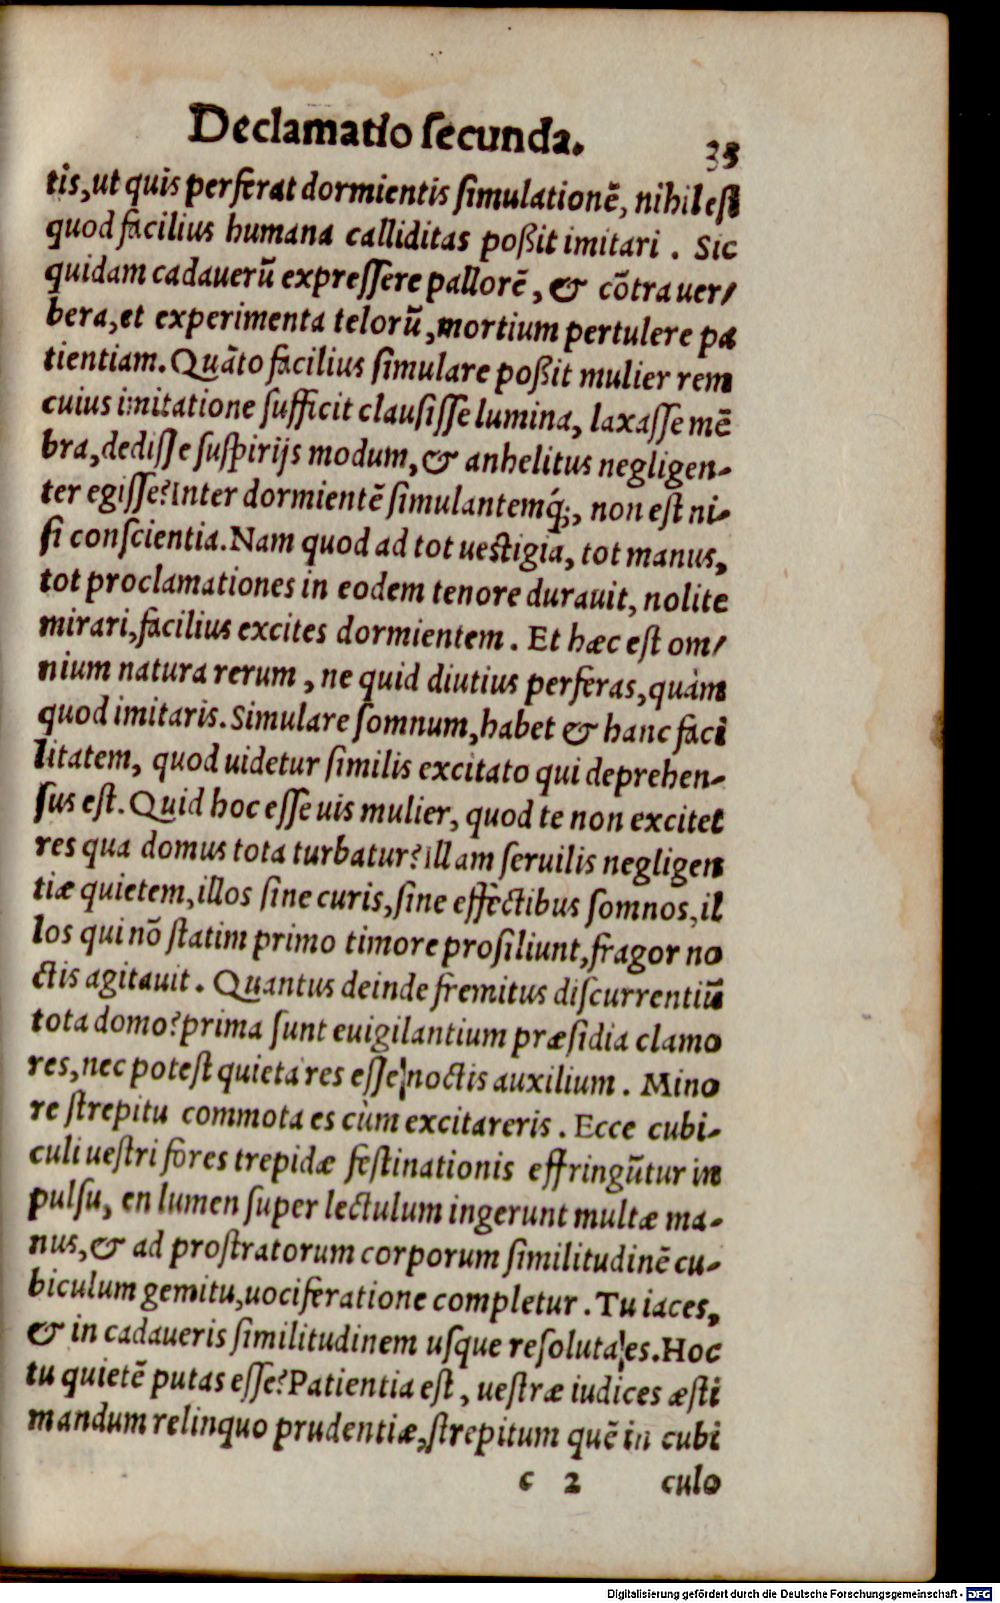 Declamatio ſecunda. 35
tis, ut quis perferat dormientis ſimulationē, nihil eſt
quod facilius humana calliditas poßit imitari . Sic
quidam cadauerū expreſſere pallorē, & cōtra uer/
bera, et experimenta telorū, mortium pertulere pa
tientiam. Quāto facilius ſimulare poßit mulier rem
cuius imitatione ſufficit clauſiſſe lumina, laxaſſe mē
bra, dediſſe ſuſpirijs modum, & anhelitus negligen-
ter egiſſe? Inter dormientē ſimulantemq́;, non eſt ni-
ſi conſcientia. Nam quod ad tot ueſtigia, tot manus,
tot proclamationes in eodem tenore durauit, nolite
mirari, facilius excites dormientem . Et hæc eſt om/
nium natura rerum , ne quid diutius perferas, quàm
quod imitaris. Simulare ſomnum, habet & hanc faci
litatem, quod uidetur ſimilis excitato qui deprehen-
ſus eſt. Quid hoc eſſe uis mulier, quod te non excitet
res qua domus tota turbatur? Illam ſeruilis negligen
tiæ quietem, illos ſine curis, ſine effectibus ſomnos, il
los qui nō ſtatim primo timore proſiliunt, fragor no
ctis agitauit . Quantus deinde fremitus diſcurrentiū
tota domo? prima ſunt euigilantium præſidia clamo
res, nec poteſt quieta res eſſe noctis auxilium . Mino
re ſtrepitu commota es cùm excitareris . Ecce cubi-
culi ueſtri fores trepidæ feſtinationis effringūtur in
pulſu, en lumen ſuper lectulum ingerunt multæ ma-
nus, & ad proſtratorum corporum ſimilitudinē cu-
biculum gemitu, uociferatione completur . Tu iaces,
& in cadaueris ſimilitudinem uſque reſoluta es. Hoc
tu quietē putas eſſe? Patientia eſt, ueſtræ iudices æſti
mandum relinquo prudentiæ, ſtrepitum quē in cubi
c 2 culo
Digitalisierung gefördert durch die Deutsche Forschungsgemeinschaft - DFG